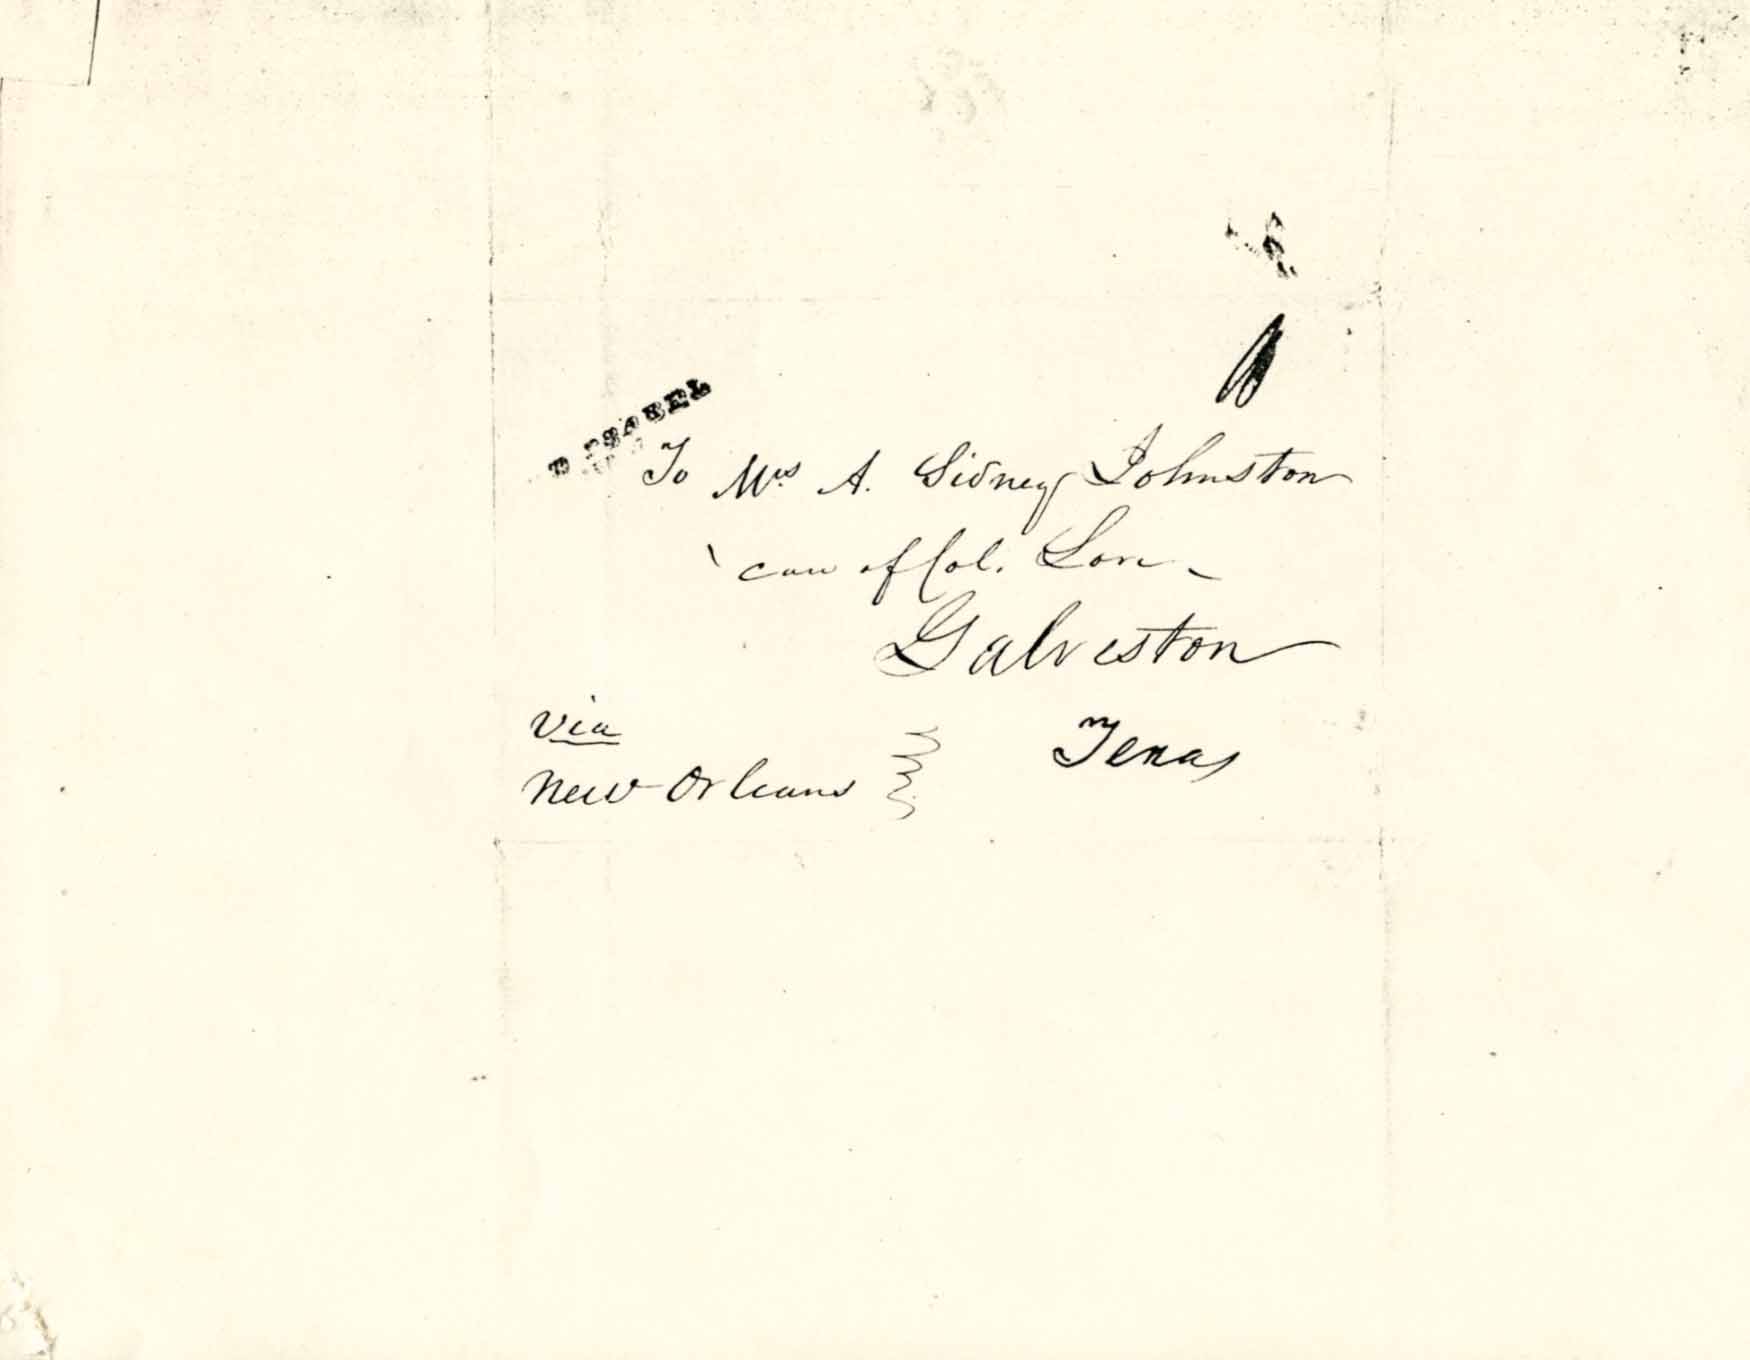 To Mrs A. Sidney Johnston
care of Col. Love
Galveston
Texas
via
New Orleans